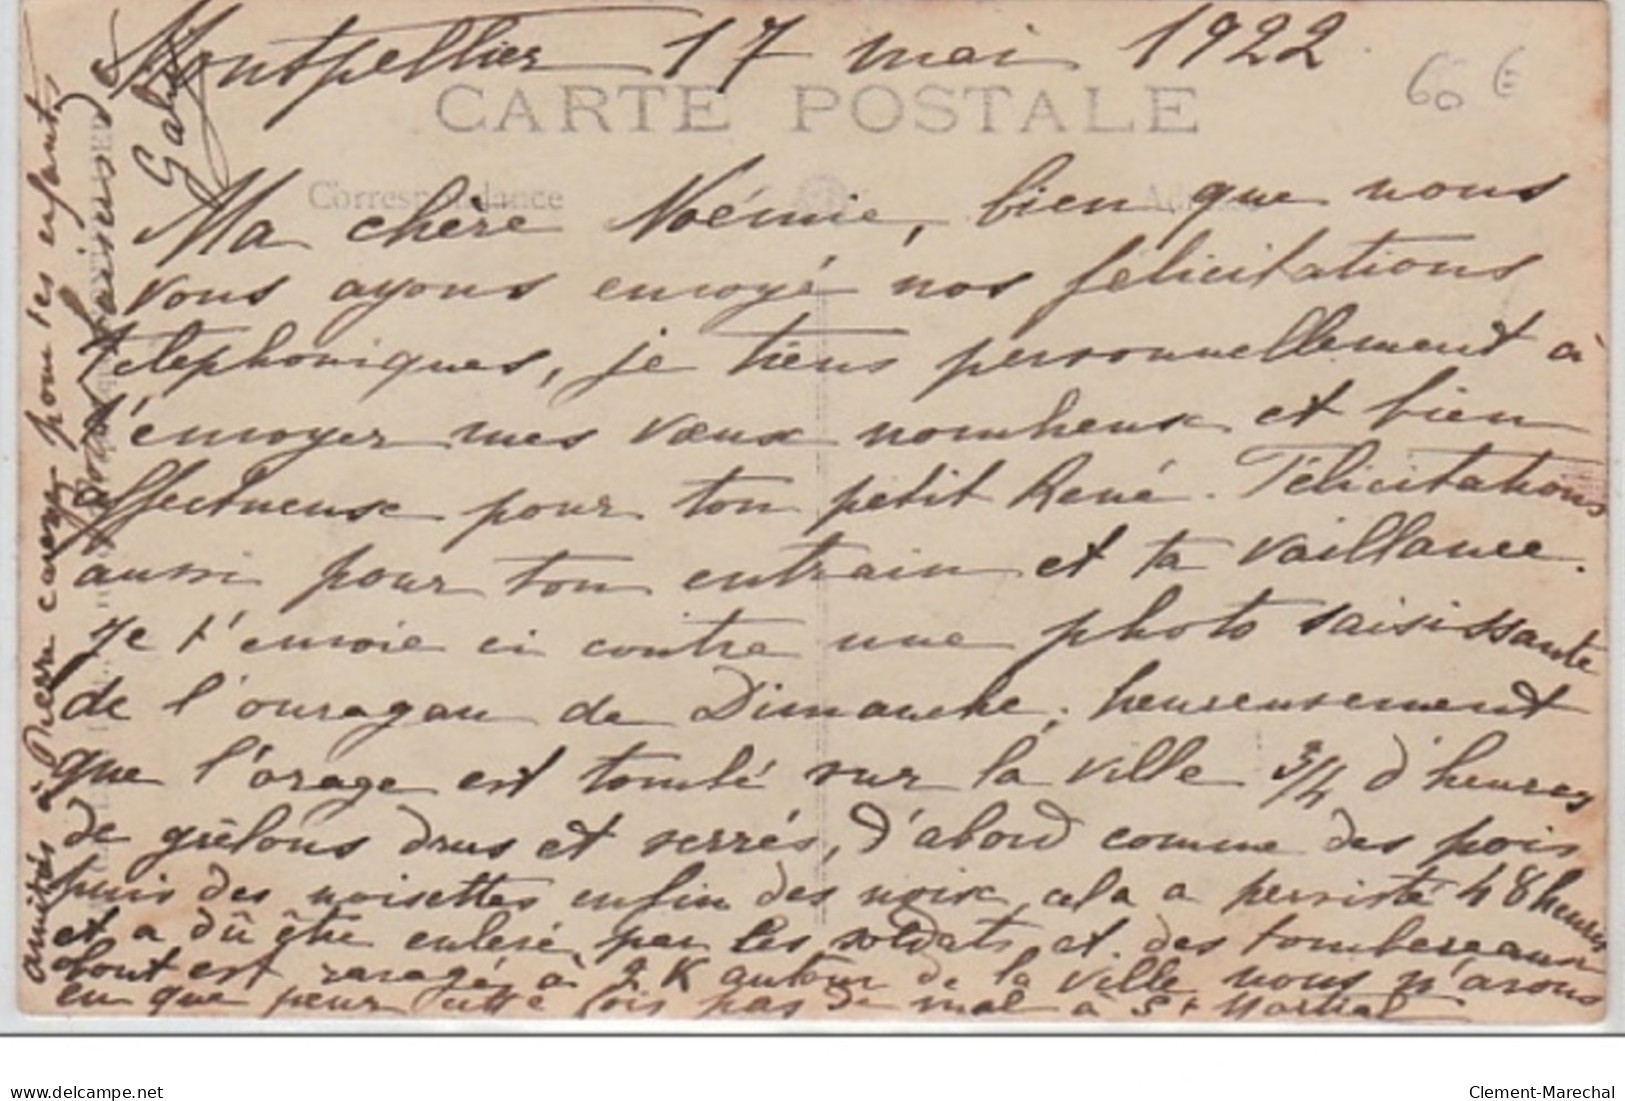 Montpellier 17 mai 1922
60 €
CARTE POSTALE
Correspondance
Ma chère Noémie, bien que nous
vous ayons envoyé nos félicitations
telephoniques, je tiens personnellement à
t'envoyer mes vœux nombreux et bien
affectueux pour ton petit René. Félicitations
aussi pour ton entrain et ta vaillance.
Je t'envoie ci contre une photo saisissante
de l'ouragan de Dimanche, heureusement
que l'orage est tombé sur la ville 3/4 d'heures
de grêlons drus et serrés, d'abord comme des pois
puis des noisettes enfin des noix, cela a persisté 48 heures
et a dû être enlevé par les soldats et des tombereaux
tout est ravagé à 2 K autour de la ville nous n'avons
eu que peur cette fois pas de mal à St Martial
amitiés à Pierre caresses pour les enfants
Bons baisers
delcampe.net
Clement-Marechal